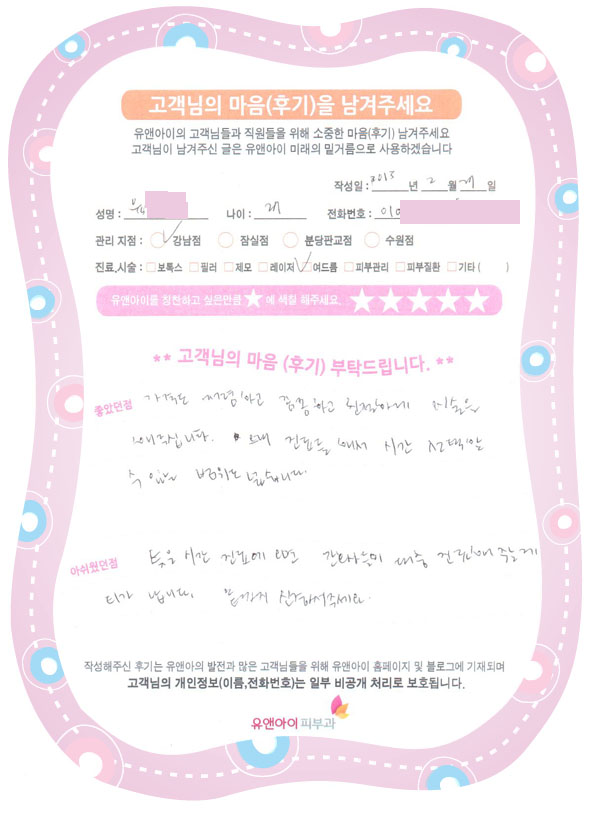 고객님의 마음(후기)을 남겨주세요
유앤아이의 고객님들과 직원들을 위해 소중한 마음(후기) 남겨주세요
고객님이 남겨주신 글은 유앤아이 미래의 밑거름으로 사용하겠습니다
작성일 : 2013 년 2 월 일
성명 : 유 나이 : 전화번호 : 010
관리 지점 : 강남점 잠실점 분당판교점 수원점
진료,시술 : 보톡스 필러 제모 레이저 여드름 피부관리 피부질환 기타 ( )
유앤아이를 칭찬하고 싶은만큼 ★ 에 색칠 해주세요. ★★★★★
** 고객님의 마음 (후기) 부탁드립니다. **
좋았던점 가격도 저렴하고 꼼꼼하고 친절하게 시술을
해주십니다. 진료를 해서 시간 선택할
수 있는 범위도 넓습니다.
아쉬웠던점 늦은 시간 진료에 오면 간호사들이 대충 관리해 주는게
티가 납니다. 끝까지 신경써주세요.
작성해주신 후기는 유앤아의 발전과 많은 고객님들을 위해 유앤아이 홈페이지 및 블로그에 기재되며
고객님의 개인정보(이름,전화번호)는 일부 비공개 처리로 보호됩니다.
유앤아이피부과